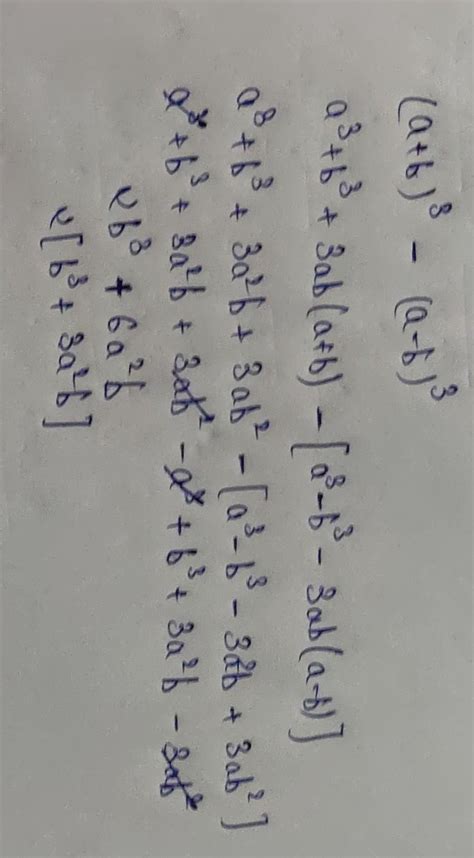 (a+b)³ - (a-b)³
a³+b³ + 3ab(a+b) - [a³-b³ - 3ab(a-b)]
a³+b³ + 3a²b + 3ab² - [a³-b³ - 3a²b + 3ab²]
a³+b³ + 3a²b + 3ab² - a³ + b³ + 3a²b - 3ab²
2b³ + 6a²b
2[b³ + 3a²b]